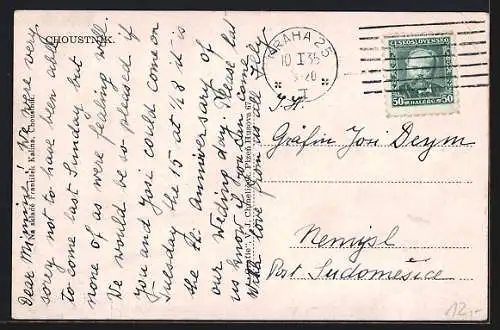 CHOUSTNÍK.
Dear Mimmi! We were very
sorry not to have been able
to come last Sunday but
none of as were fealing well
We would be so pleased if
you and Josie could come on
Tuesday the 15 at 1/2 8 it is
the Anniversary of
our Wedding day. Please let
us know if you can come
With love from us all
Na skladě František Kalina, Choustník.
PRAHA 25
10 I 35
-20
ČESKOSLOVENSKO
50 HALÉŘŮ 50
Gräfin Josi Deym
Nemyšl
Post Sudoměřice
12,-